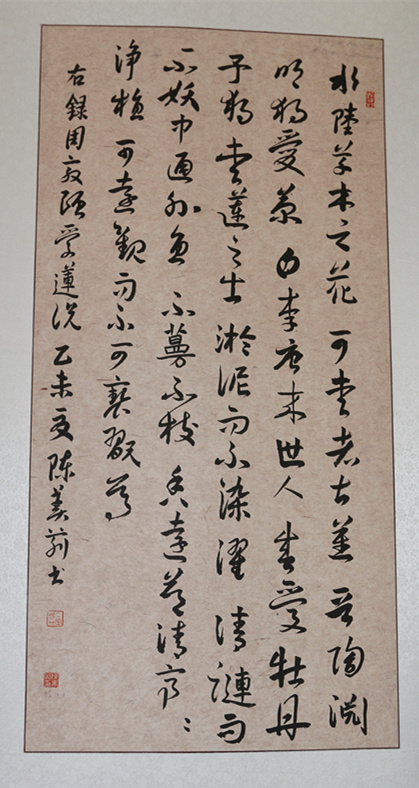 水陸草木之花可愛者甚蕃晉陶淵
明獨愛菊自李唐來世人甚愛牡丹
予獨愛蓮之出淤泥而不染濯清漣而
不妖中通外直不蔓不枝香遠益清亭〻
淨植可遠觀而不可褻翫焉
右録周敦頤愛蓮説乙未夏陈美书